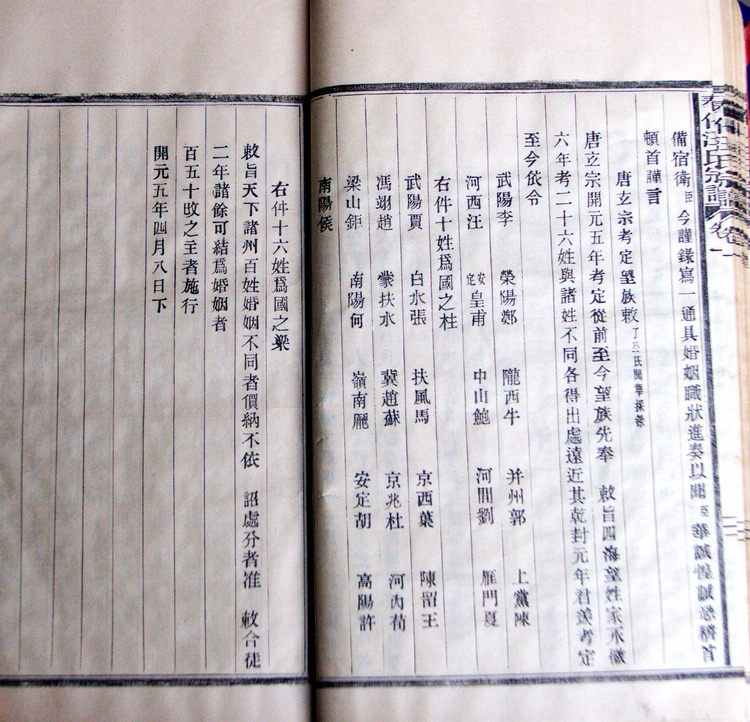 備宿衛臣今謹錄寫一通具婚姻職狀進奏以聞臣華誠惶誠恐稽首
頓首謹言
唐玄宗考定望族敕
唐玄宗開元五年考定從前至今望族先奉 敕旨四海望姓家永徽
六年考二十六姓與諸姓不同各得出處遠近其乾封元年君羨考定
至今依令
武陽李 滎陽鄭 隴西牛 并州郭 上黨陳
河西汪 安定皇甫 中山鮑 河間劉 雁門夏
右件十姓爲國之柱
武陽賈 白水張 扶風馬 京西葉 陳留王
馮翊趙 蒙扶水 冀趙蘇 京兆杜 河內荀
梁山鉅 南陽何 嶺南龎 安定胡 高陽許
南陽侯
右件十六姓爲國之梁
敕旨天下諸州百姓婚姻不同者價納不依 詔處分者准 敕合徒
二年諸餘可結爲婚姻者
百五十改之主者施行
開元五年四月八日下